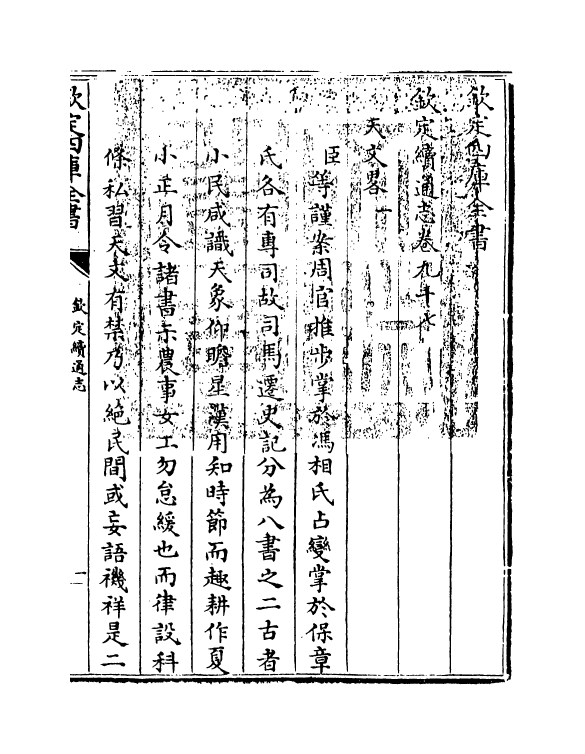 欽定四庫全書
欽定續通志卷九十七
天文畧
臣等謹案周官推步掌於馮相氏占變掌於保章
氏各有專司故司馬遷史記分為八書之二古者
小民咸識天象仰瞻星漢用知時節而趣耕作夏
小正月令諸書示農事女工勿怠緩也而律設科
條私習天文有禁乃以絕民間或妄語禨祥是二
欽定四庫全書
欽定續通志